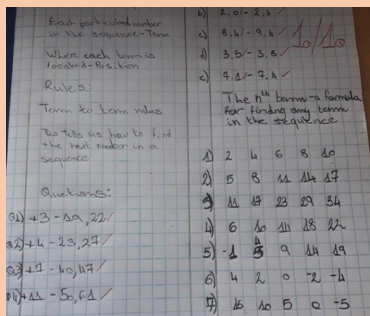 Each particular number
in the sequence-Term
Where each term is
located-Position
Rules:
Term to term rules
This tells us how to find
the next number in a
sequence
Questions:
Q1) +3 - 19, 22
Q2) +4 - 23, 27
Q3) +7 - 40, 47
Q4) +11 - 50, 61
b) 2,0/- 2,4
c) 8,4/- 9,4
d) 3,5/- 3,8
e) 7,1/- 7,4
10/10
The nth term - a formula
for finding any term
in the sequence
1) 2 4 6 8 10
2) 5 8 11 14 17
3) 11 17 23 29 34
4) 6 10 14 18 22
5) -1 4 9 14 19
6) 4 2 0 -2 -4
7) 15 10 5 0 -5